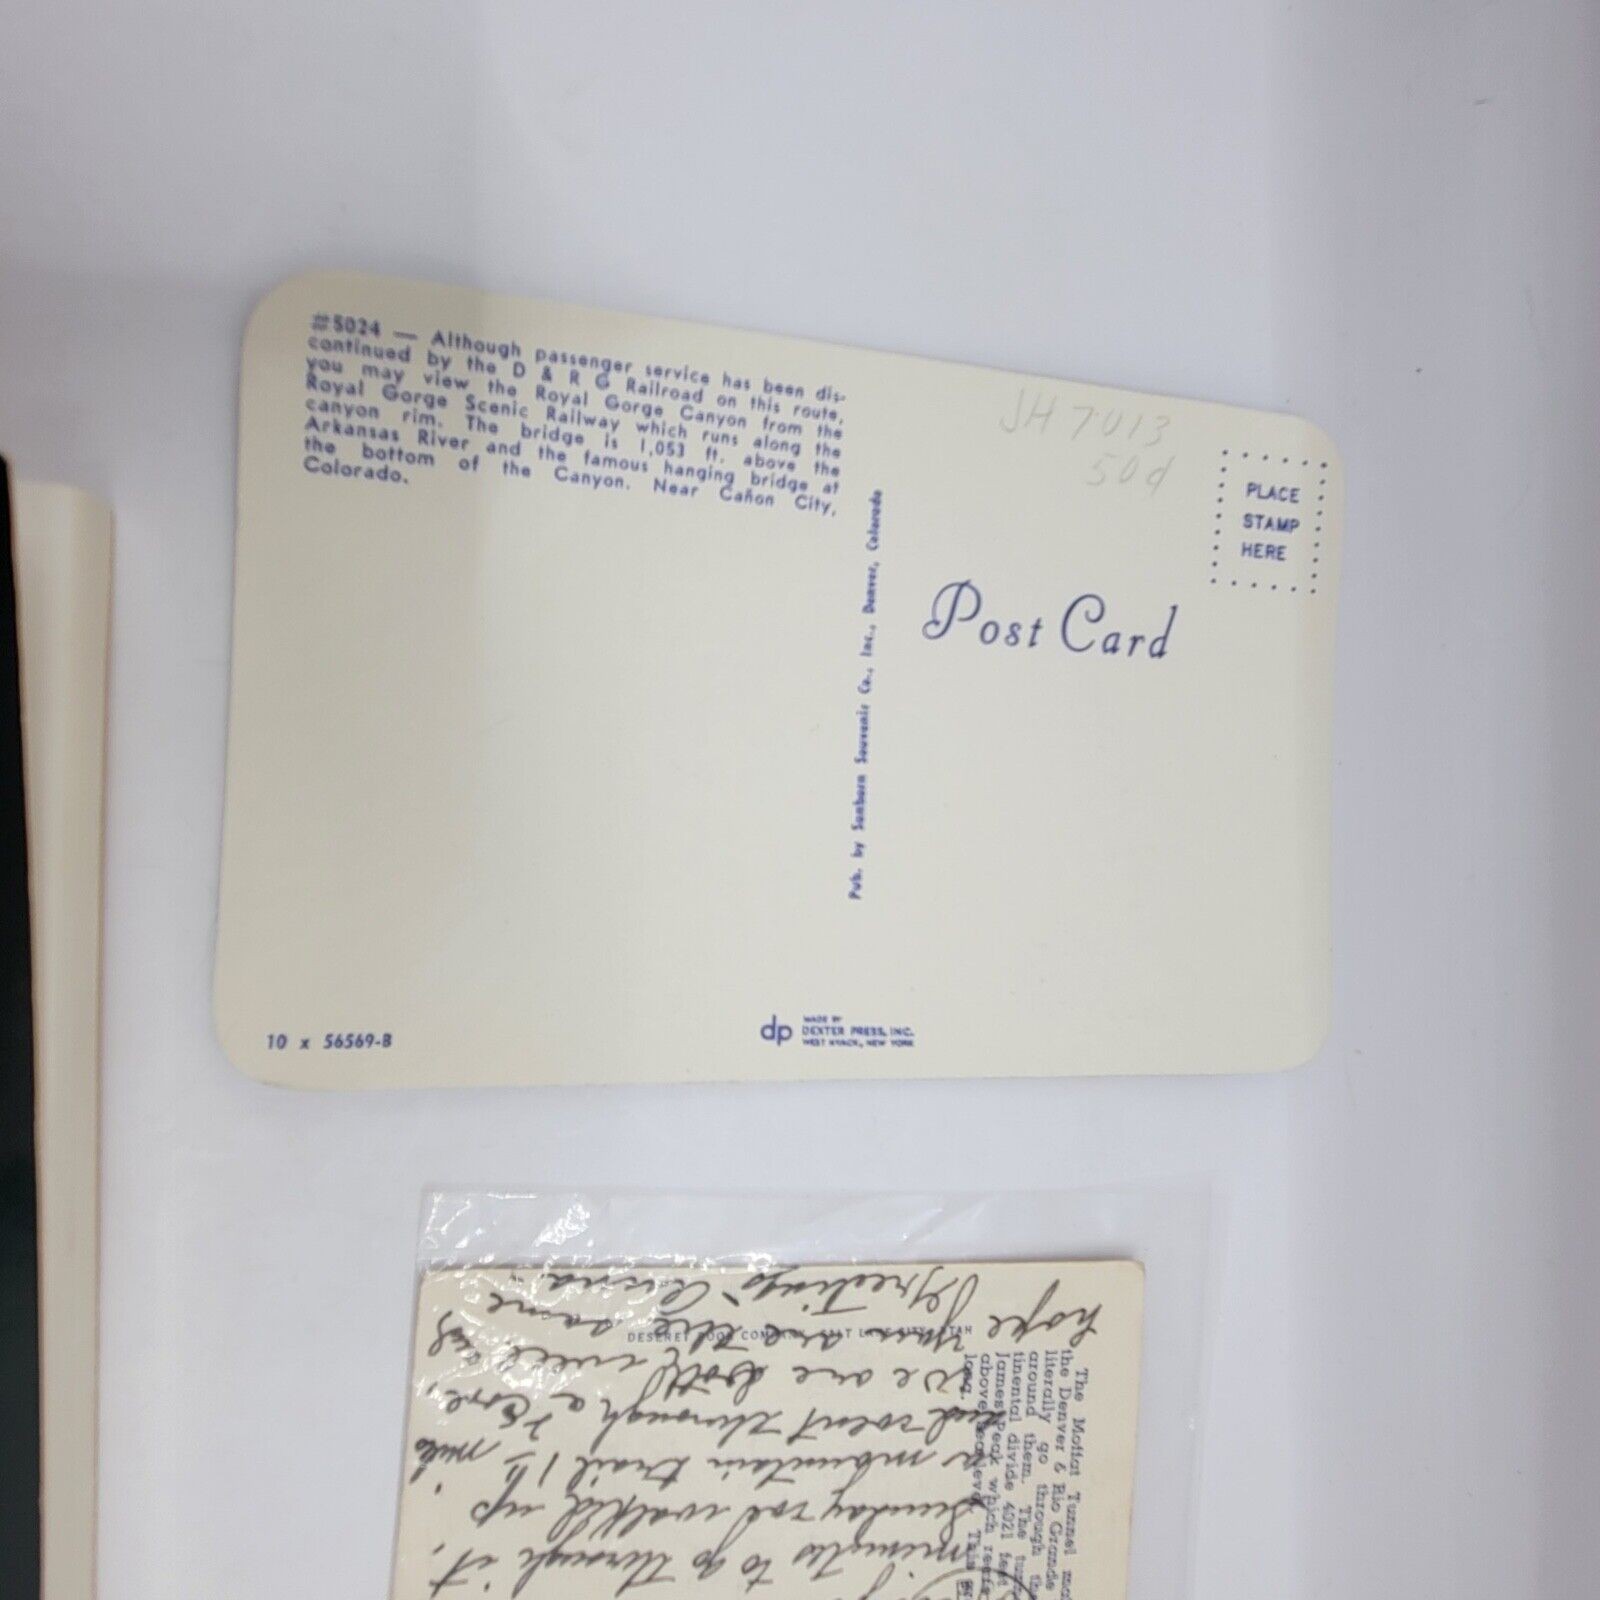 #5024 — Although passenger service has been dis-
continued by the D & R G Railroad on this route,
you may view the Royal Gorge Canyon from the
Royal Gorge Scenic Railway which runs along the
canyon rim. The bridge is 1,053 ft. above the
Arkansas River and the famous hanging bridge at
the bottom of the Canyon. Near Cañon City,
Colorado.
JH 7013
50¢
PLACE
STAMP
HERE
Post Card
Pub. by Sanborn Souvenir Co., Inc., Denver, Colorado
10 x 56569-B
dp
MADE BY
DEXTER PRESS, INC.
WEST NYACK, NEW YORK
The Moffat Tunnel
the Denver & Rio Grande
literally go through
around them. The
tinental divide 4021 feet
James Peak which
above sea level. This
long.
DESERET BOOK COMPANY, SALT LAKE CITY, UTAH
minutes to go through it.
Sunday we walked up
a mountain trail 1½ mile
and went through a cave.
We are both well and
hope you are the same
Greetings Anna